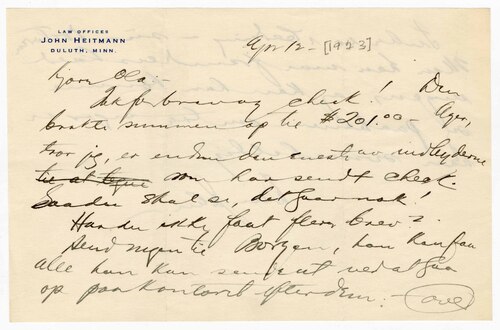 LAW OFFICES
JOHN HEITMANN
DULUTH, MINN.
Apr 12 - [1923]
Kjære Ola: -
Takk for brev og check! Den
bragte summen op til $201.00 - Ager,
tror jeg, er endnu den eneste av
som har sendt check.
Saa du skal se, det gaar nok!
Har du ikke faat flere brev?
Send ingen til Borgen, han kan faa
alle han kan sende ut ved at gaa
op paa kontoret efter dem. - over